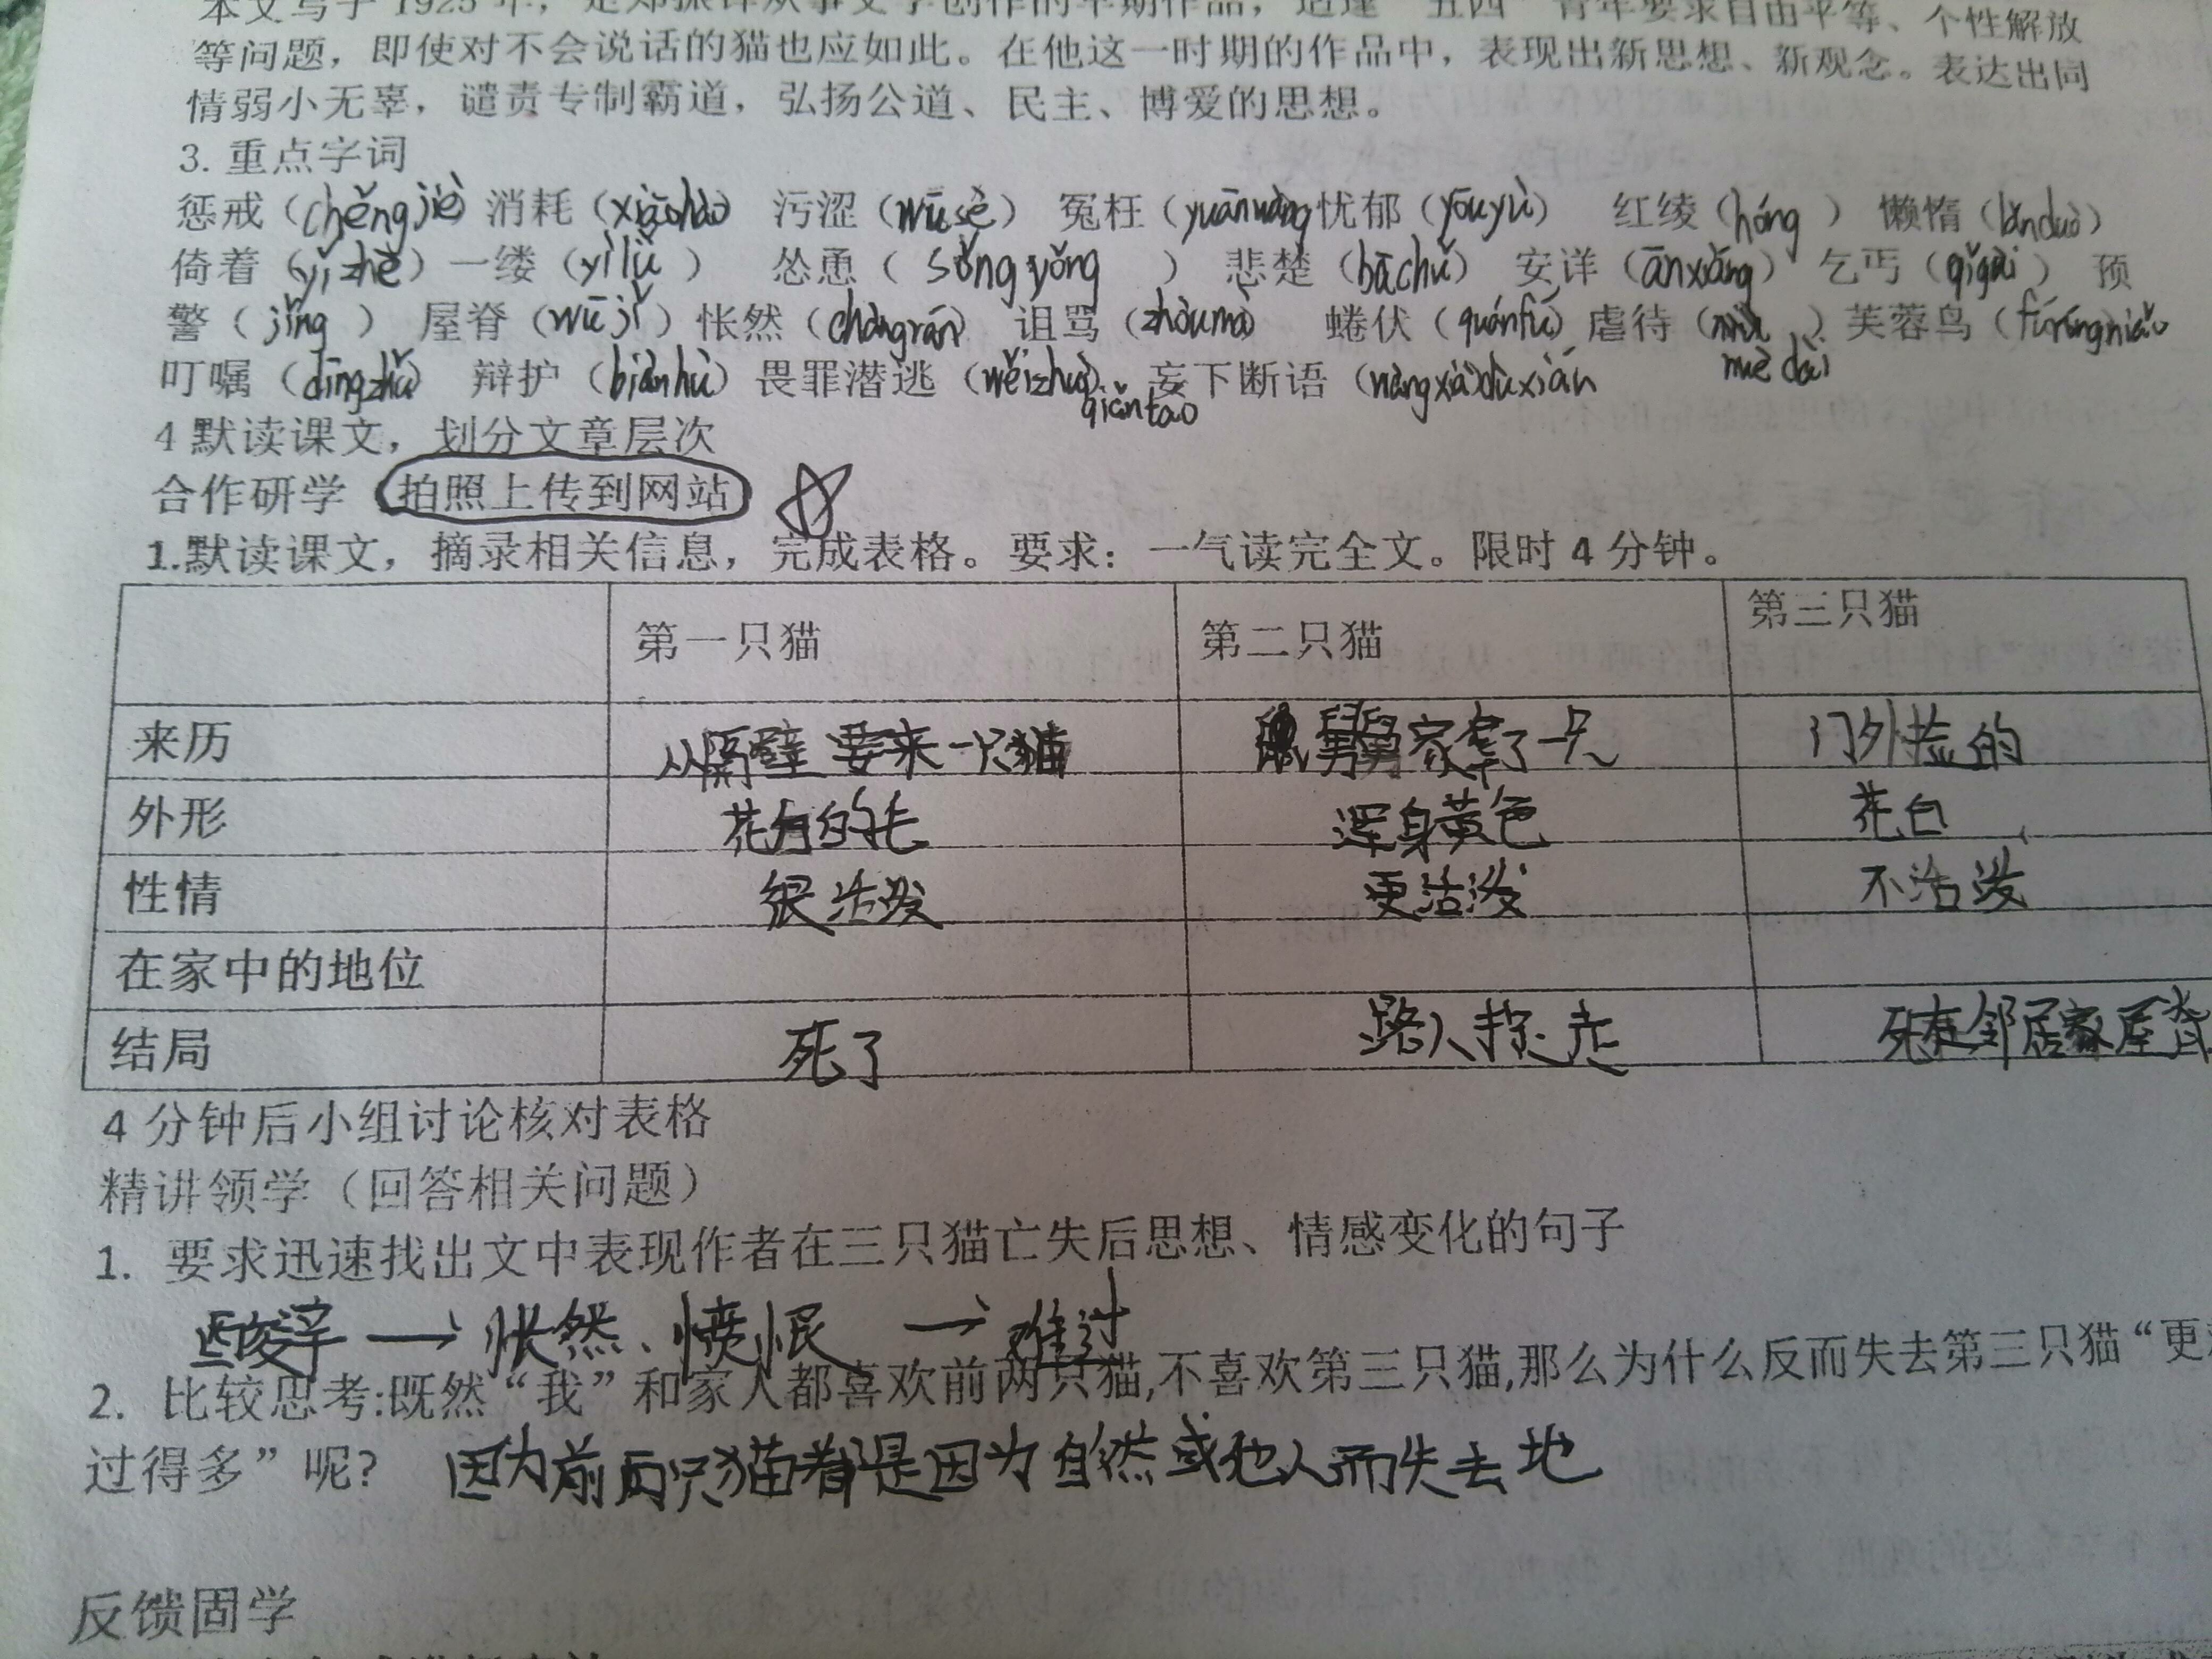 本文写于 1925 年，是郑振铎从事文学创作的早期作品，适逢“五四”青年要求自由平等、个性解放
等问题，即使对不会说话的猫也应如此。在他这一时期的作品中，表现出新思想、新观念。表达出同
情弱小无辜，谴责专制霸道，弘扬公道、民主、博爱的思想。
3. 重点字词
惩戒（chěngjiè）消耗（xiāohào）污涩（wūsè）冤枉（yuānwàng忧郁（yōuyù）红绫（hóng）懒惰（lǎnduò）
倚着（yǐzhè）一缕（yìlǚ）怂恿（sǒngyǒng）悲楚（bāchǔ）安详（ānxiáng）乞丐（qǐgài）预
警（jǐng）屋脊（wūjǐ）怅然（chàngrán）诅骂（zhòumà）蜷伏（quánfú）虐待（）芙蓉鸟（fúróngniǎo
nuè dài
叮嘱（dīngzhǔ）辩护（biànhù）畏罪潜逃（wěizhuì）妄下断语（wàngxiàduxián
qiǎntao
4 默读课文，划分文章层次
合作研学 拍照上传到网站
1.默读课文，摘录相关信息，完成表格。要求：一气读完全文。限时 4 分钟。
第一只猫 第二只猫 第三只猫
来历 从隔壁要来一只猫 舅舅家拿了一只 门外捡的
外形 花白的毛 浑身黄色 花白
性情 很活泼 更活泼 不活泼
在家中的地位
结局 死了 路人捉走 死在邻居家屋脊
4 分钟后小组讨论核对表格
精讲领学（回答相关问题）
1. 要求迅速找出文中表现作者在三只猫亡失后思想、情感变化的句子
酸辛 → 怅然、愤恨 → 难过
2. 比较思考:既然“我”和家人都喜欢前两只猫,不喜欢第三只猫,那么为什么反而失去第三只猫“更
过得多”呢? 因为前两只猫都是因为自然或他人而失去地
反馈固学